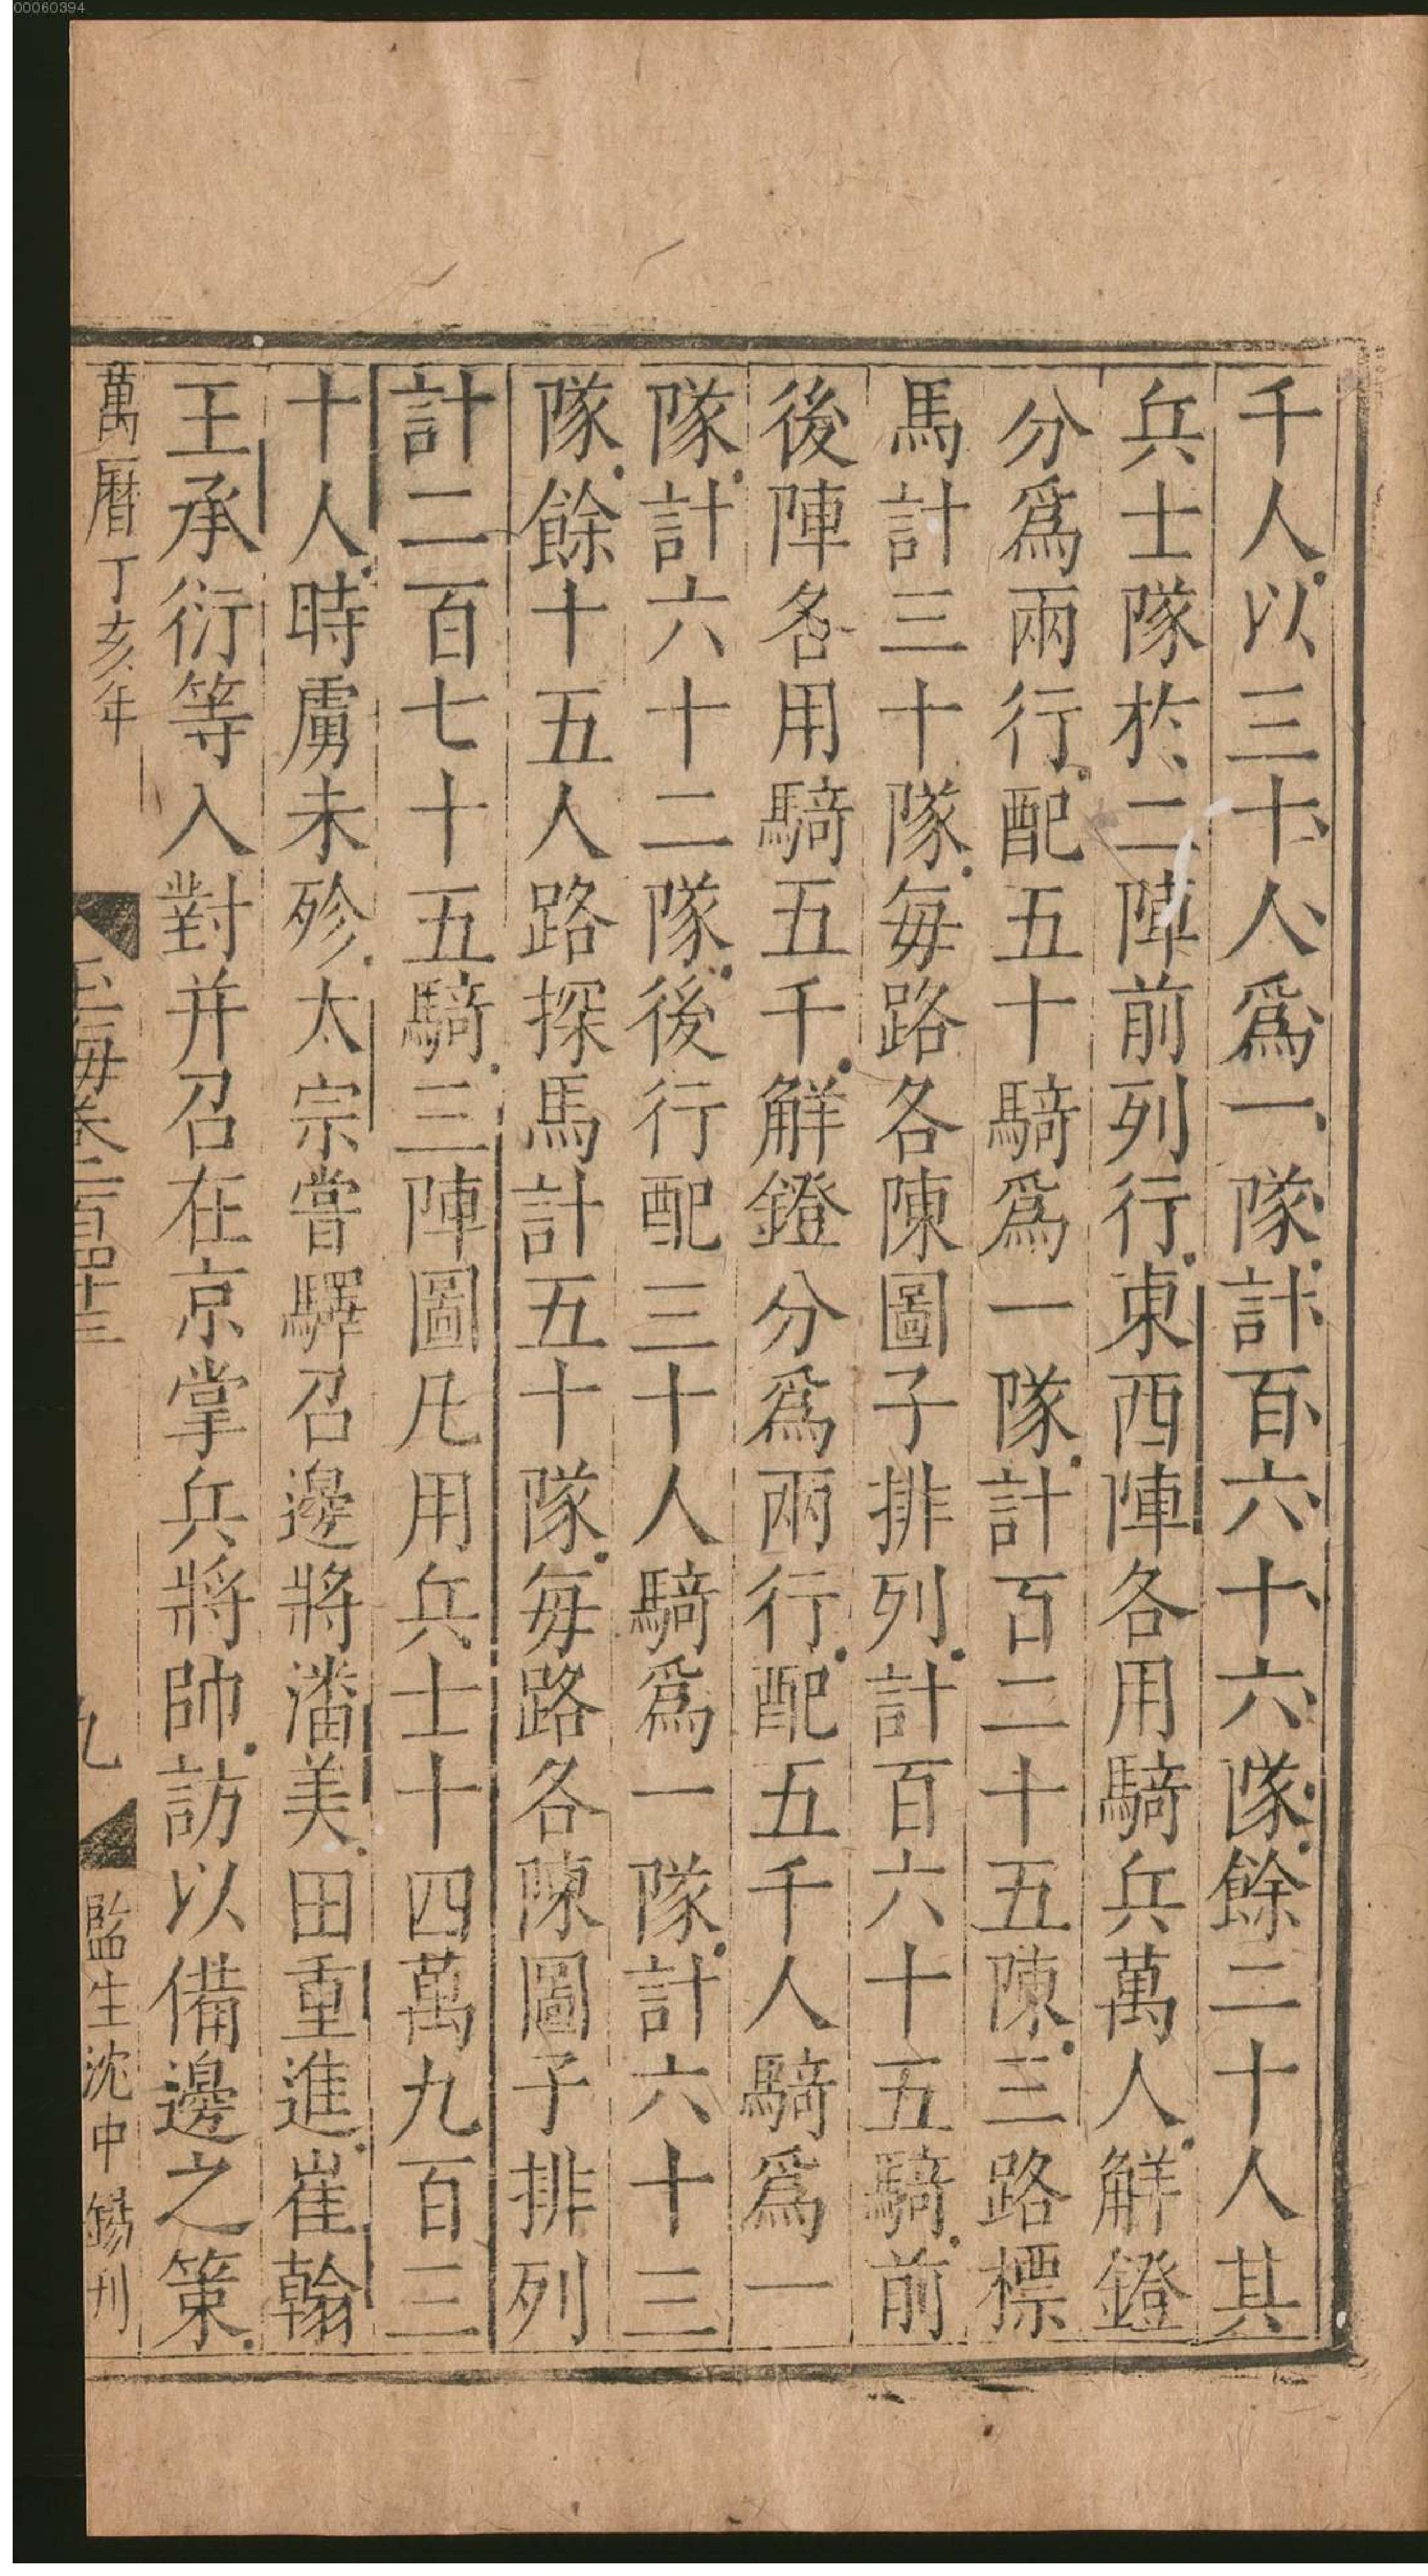 00060394
千人以三十人爲一隊計百六十六隊餘二十人其
兵士隊於二陣前列行東西陣各用騎兵萬人觧鐙
分爲兩行配五十騎爲一隊計百二十五陳三路標
馬計三十隊每路各陳圖子排列計百六十五騎前
後陣各用騎五千觧鐙分爲兩行配五千人騎爲一
隊計六十二隊後行配三十人騎爲一隊計六十三
隊餘十五人路探馬計五十隊每路各陳圖子排列
計二百七十五騎三陣圖凡用兵士十四萬九百三
十人時虜未殄太宗嘗驛召邊將潘美田重進崔翰
王承衍等入對并召在京掌兵將帥訪以備邊之策
萬曆丁亥年
玉海卷一百四十三
九
監生沈中錫刋